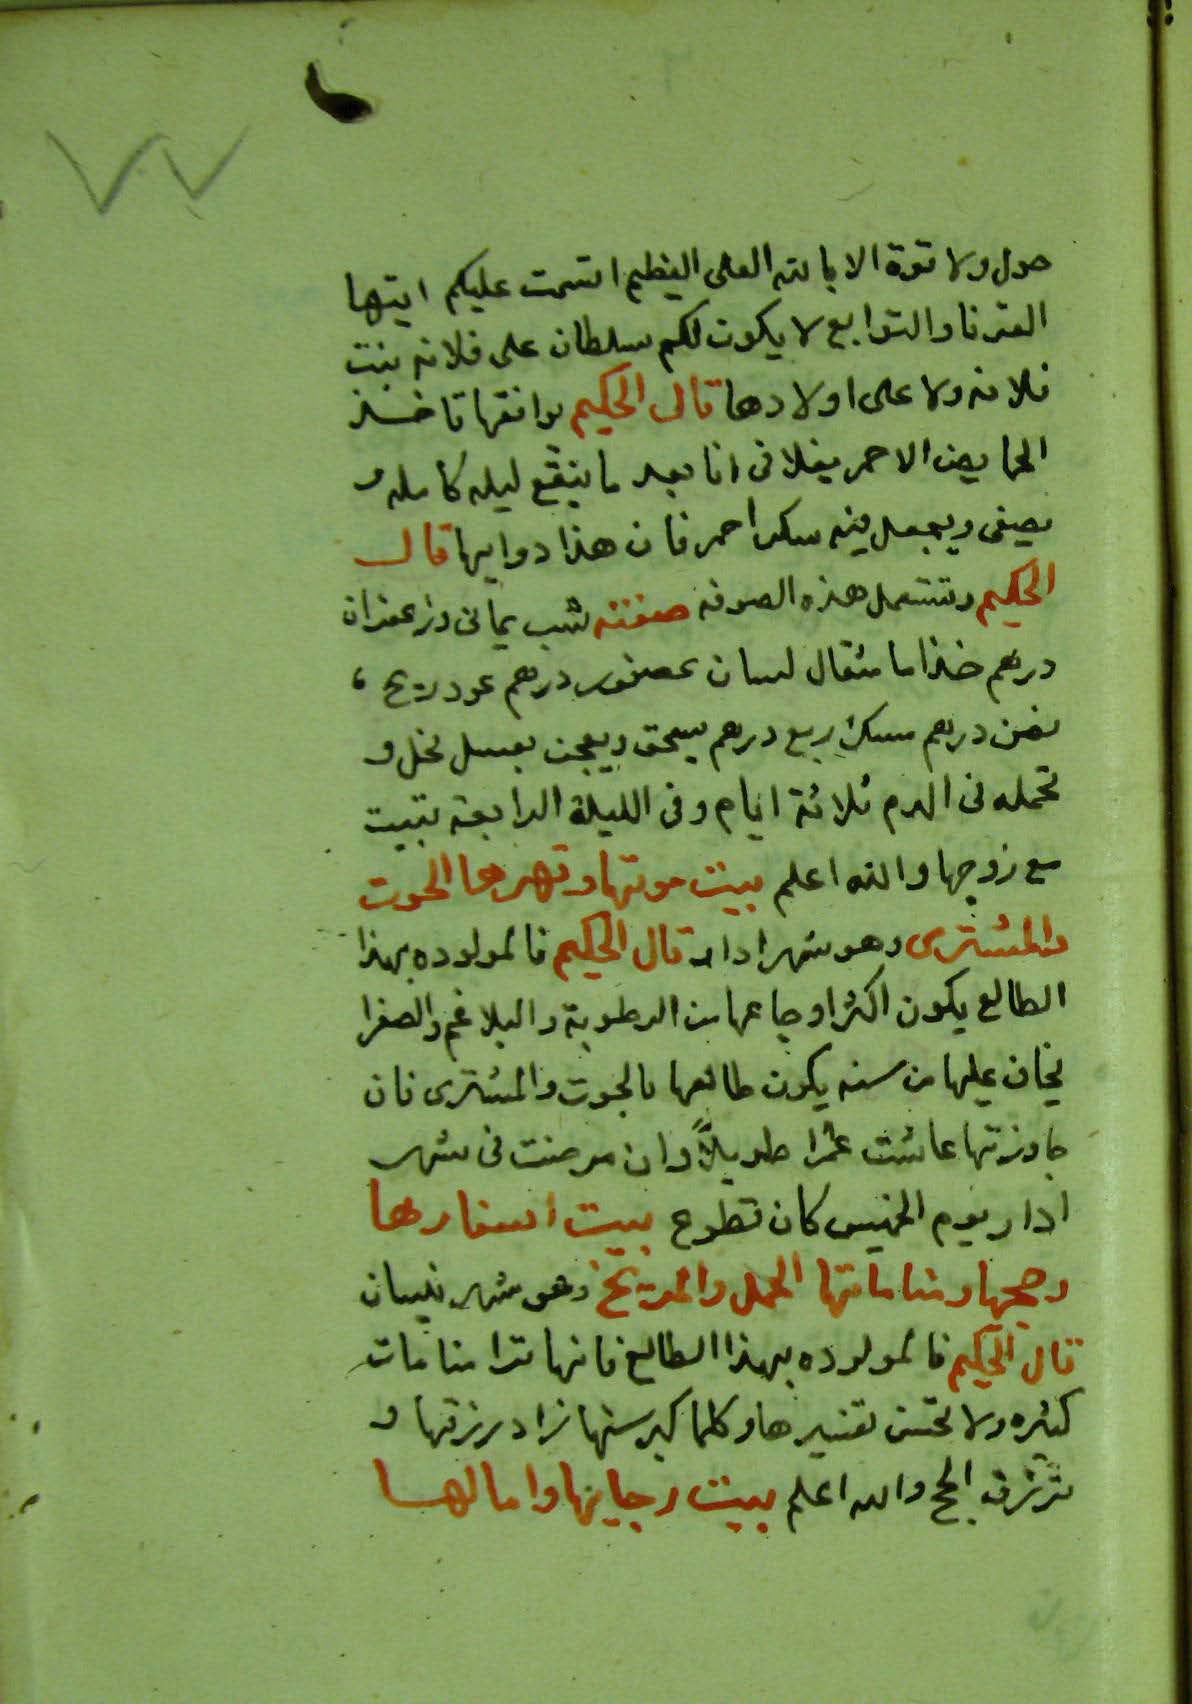 ٧٧
حول ولا قوة الا بالله العلى العظيم اقسمت عليكم ايتها
القرنا والتوابع لا يكون لكم سلطان على فلانه بنت
فلانه ولا على اولادها قال الحكيم يوافقها تاخذ
الاحمر يغلا فى انا بعد ما ينقع ليله كامله و
يصفى ويجعل فيه سكرا احمر فان هذا دوايها قال
الحكيم وتستعمل هذه الصوفه صفته شب يمانى وزعفران
درهم خذاما مثقال لسان عصفور درهم عود ريح
نصف درهم مسك ربع درهم يسحق ويعجن بعسل نحل و
تحمله فى الدم ثلاثة ايام وفى الليلة الرابعة تبيت
مع زوجها والله اعلم بيت موتها وقهرها الحوت
والمشترى وهو شهر ادار قال الحكيم فالمولوده بهذا
الطالع يكون اكثر اوجاعها من الرطوبة والبلاغم والصفرا
يخاف عليها من سنه يكون طالعها بالحوت والمشترى فان
جاوزتها عاشت عمرا طويلاً وان مرضت فى شهر
ادار يوم الخميس كان قطوع بيت اسفارها
وحجها ومناماتها الحمل والمريخ وهو شهر نيسان
قال الحكيم فالمولوده بهذا الطالع فانها ترا منامات
كثيره ولا تحسن تفسيرها وكلما كبر سنها زاد رزقها و
ترزق الحج والله اعلم بيت رجايها وامالها